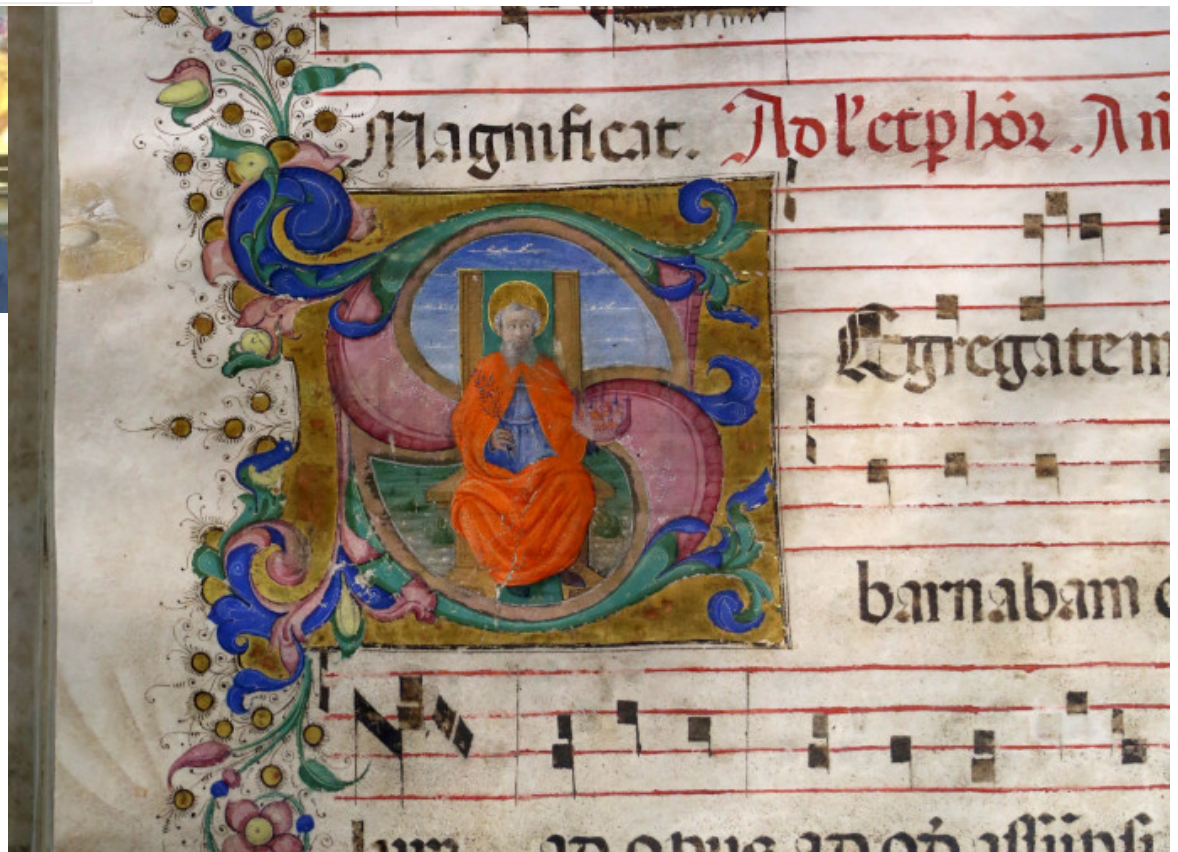 Magnificat. Ad l' et ꝑ hōr. An
SEgregate m
barnabam
lum ad opus ad qđ assūpsi